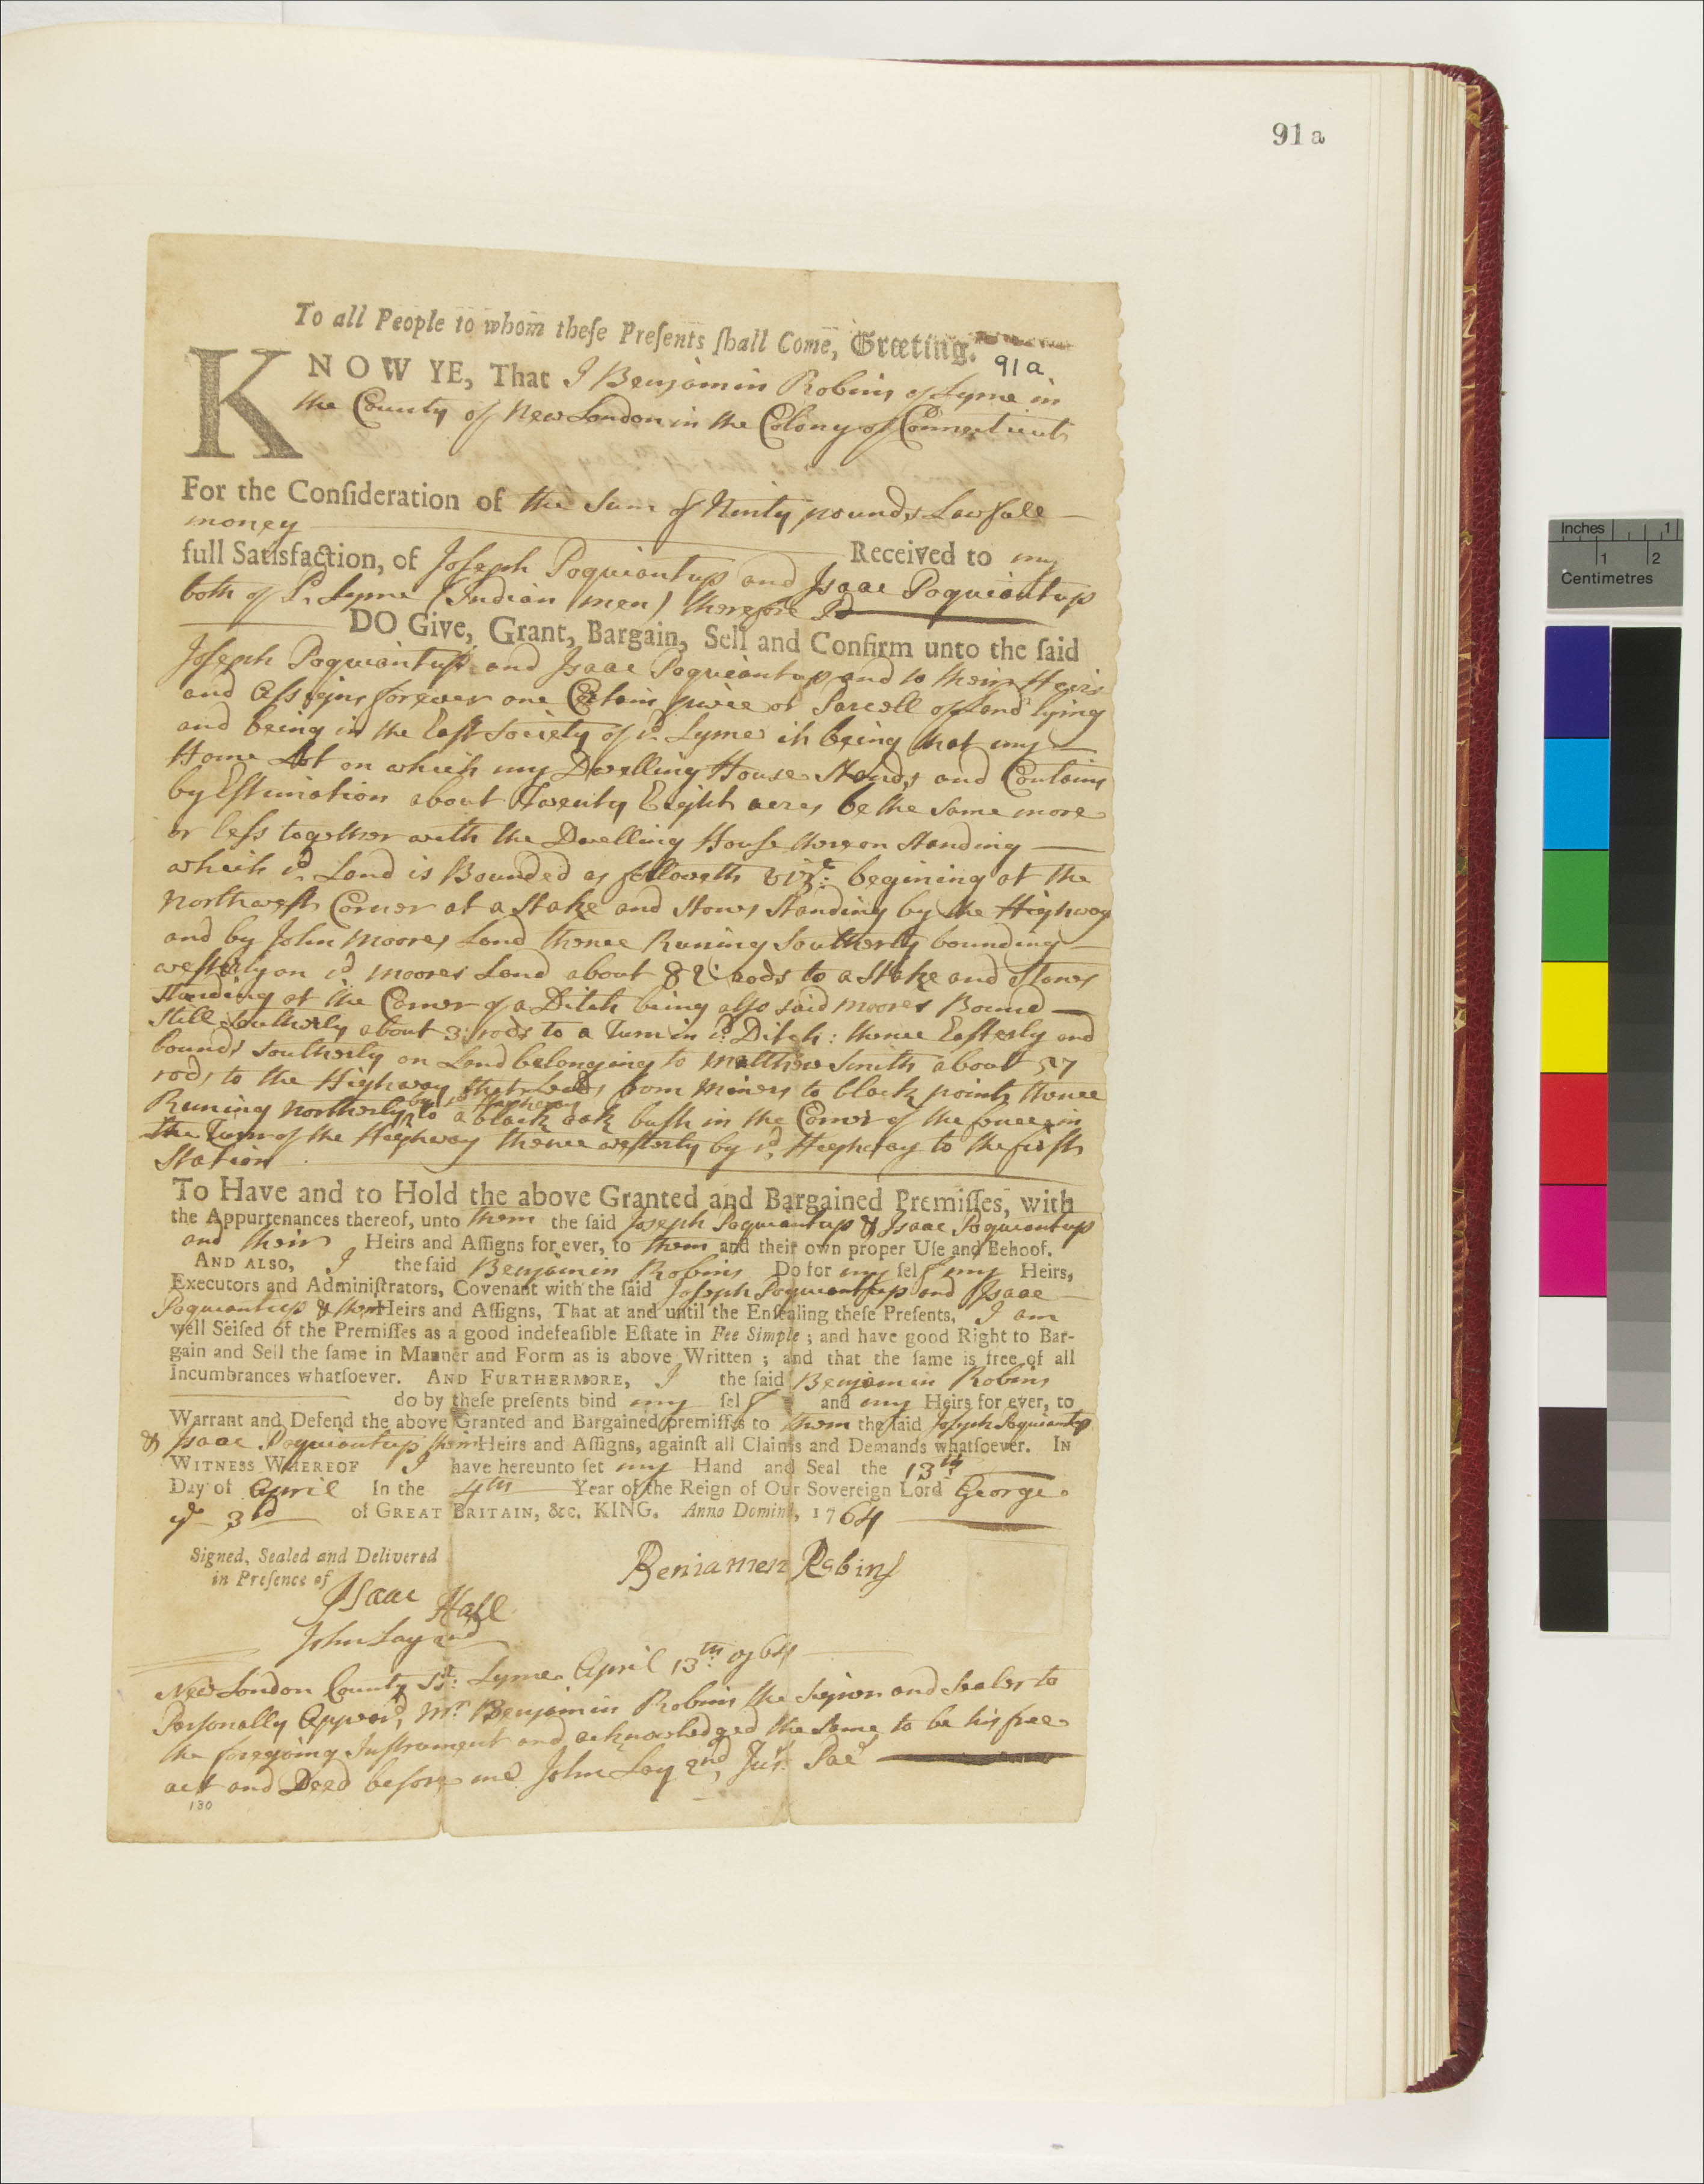 91 a
To all People to whom theſe Preſents ſhall Come, Greeting.
91a
KNOW YE, That I Benjamin Robins of Lyme in
the County of New London in the Colony of Connecticut
For the Conſideration of the Sum of Ninty pounds Lawfull
money Received to my
full Satisfaction, of Joseph Poquiantup and Isaac Poquiantup
both of Sd. Lyme (Indian men) therefore I
DO Give, Grant, Bargain, Sell and Confirm unto the ſaid
Joseph Poquiantup and Isaac Poquiantup and to their Heirs
and Assigns forever one Certain piece or Parcell of Land lying
and being in the East Society of sd. Lyme it being that my
Home Lot on which my Dwelling House Stands and Contains
by Estimation about Twenty Eight acres be the same more
or less together with the Dwelling House thereon Standing
which sd. Land is Bounded as followeth viz: begining at the
Northwest Corner at a Stake and Stones Standing by the Highway
and by John Moores Land thence Runing Southerly bounding
westerly on sd. Moores Land about 82 rods to a Stake and Stones
Standing at the Corner of a Ditch being also said Moores Bound
Still Southerly about 3 rods to a Turn in sd. Ditch: thence Easterly and
bounds Southerly on Land belonging to Matthew Smith about 57
rods to the Highway that Leads from Miners to black point thence
by sd. Highway
Runing Northerly to a black oak bush in the Corner of the fence in
the Turn of the Highway thence westerly by sd. Highway to the first
Station
To Have and to Hold the above Granted and Bargained Premiſſes, with
the Appurtenances thereof, unto them the ſaid Joseph Poquiantup & Isaac Poquiantup
and their Heirs and Aſſigns for ever, to them and their own proper Uſe and Behoof.
AND ALSO, I the ſaid Benjamin Robins Do for my ſelf my Heirs,
Executors and Adminiſtrators, Covenant with the ſaid Joseph Poquiantup and Isaac
Poquiantup & their Heirs and Aſſigns, That at and until the Enſealing theſe Preſents, I am
well Seiſed of the Premiſſes as a good indefeaſible Eſtate in Fee Simple; and have good Right to Bar-
gain and Sell the ſame in Manner and Form as is above Written; and that the ſame is free of all
Incumbrances whatſoever. AND FURTHERMORE, I the ſaid Benjamin Robins
do by theſe preſents bind my ſelf and my Heirs for ever, to
Warrant and Defend the above Granted and Bargained premiſſes to them the ſaid Joseph Poquiantup
& Isaac Poquiantup their Heirs and Aſſigns, againſt all Claims and Demands whatſoever. IN
WITNESS WHEREOF I have hereunto ſet my Hand and Seal the 13th
Day of April In the 4th Year of the Reign of Our Sovereign Lord George
ye 3d of GREAT BRITAIN, &c. KING. Anno Domini, 1764
Signed, Sealed and Delivered
in Preſence of
Beniamen Robins
Isaac Hall
John Lay 2nd
New London County Ss: Lyme April 13th 1764
Personally Appeard, Mr. Benjamin Robins the Signer and Sealer to
the foregoing Instrument and acknowledged the same to be his free
act and Deed before me John Lay 2nd, Jus. Pac
130
Inches 1
1 2
Centimetres